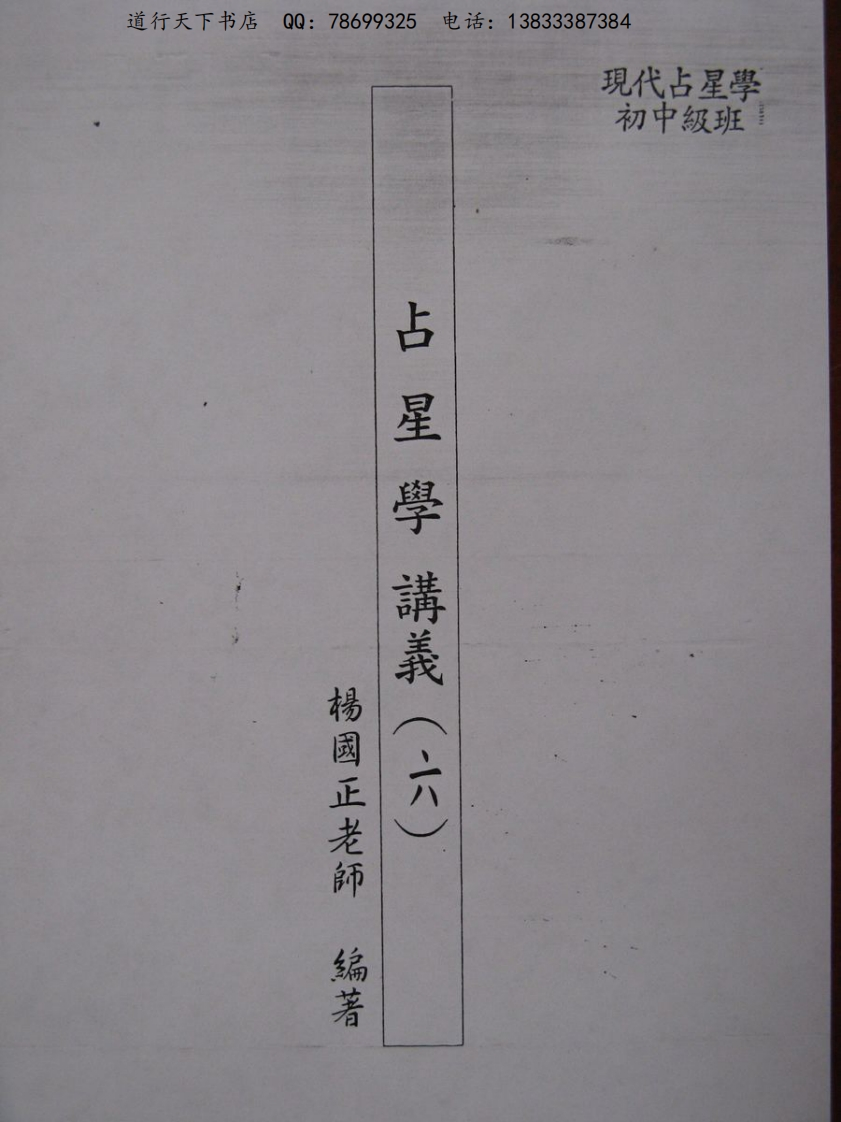 道行天下书店 QQ: 78699325 电话: 13833387384
現代占星學
初中級班
占星學講義(六)
楊國正老師 編著